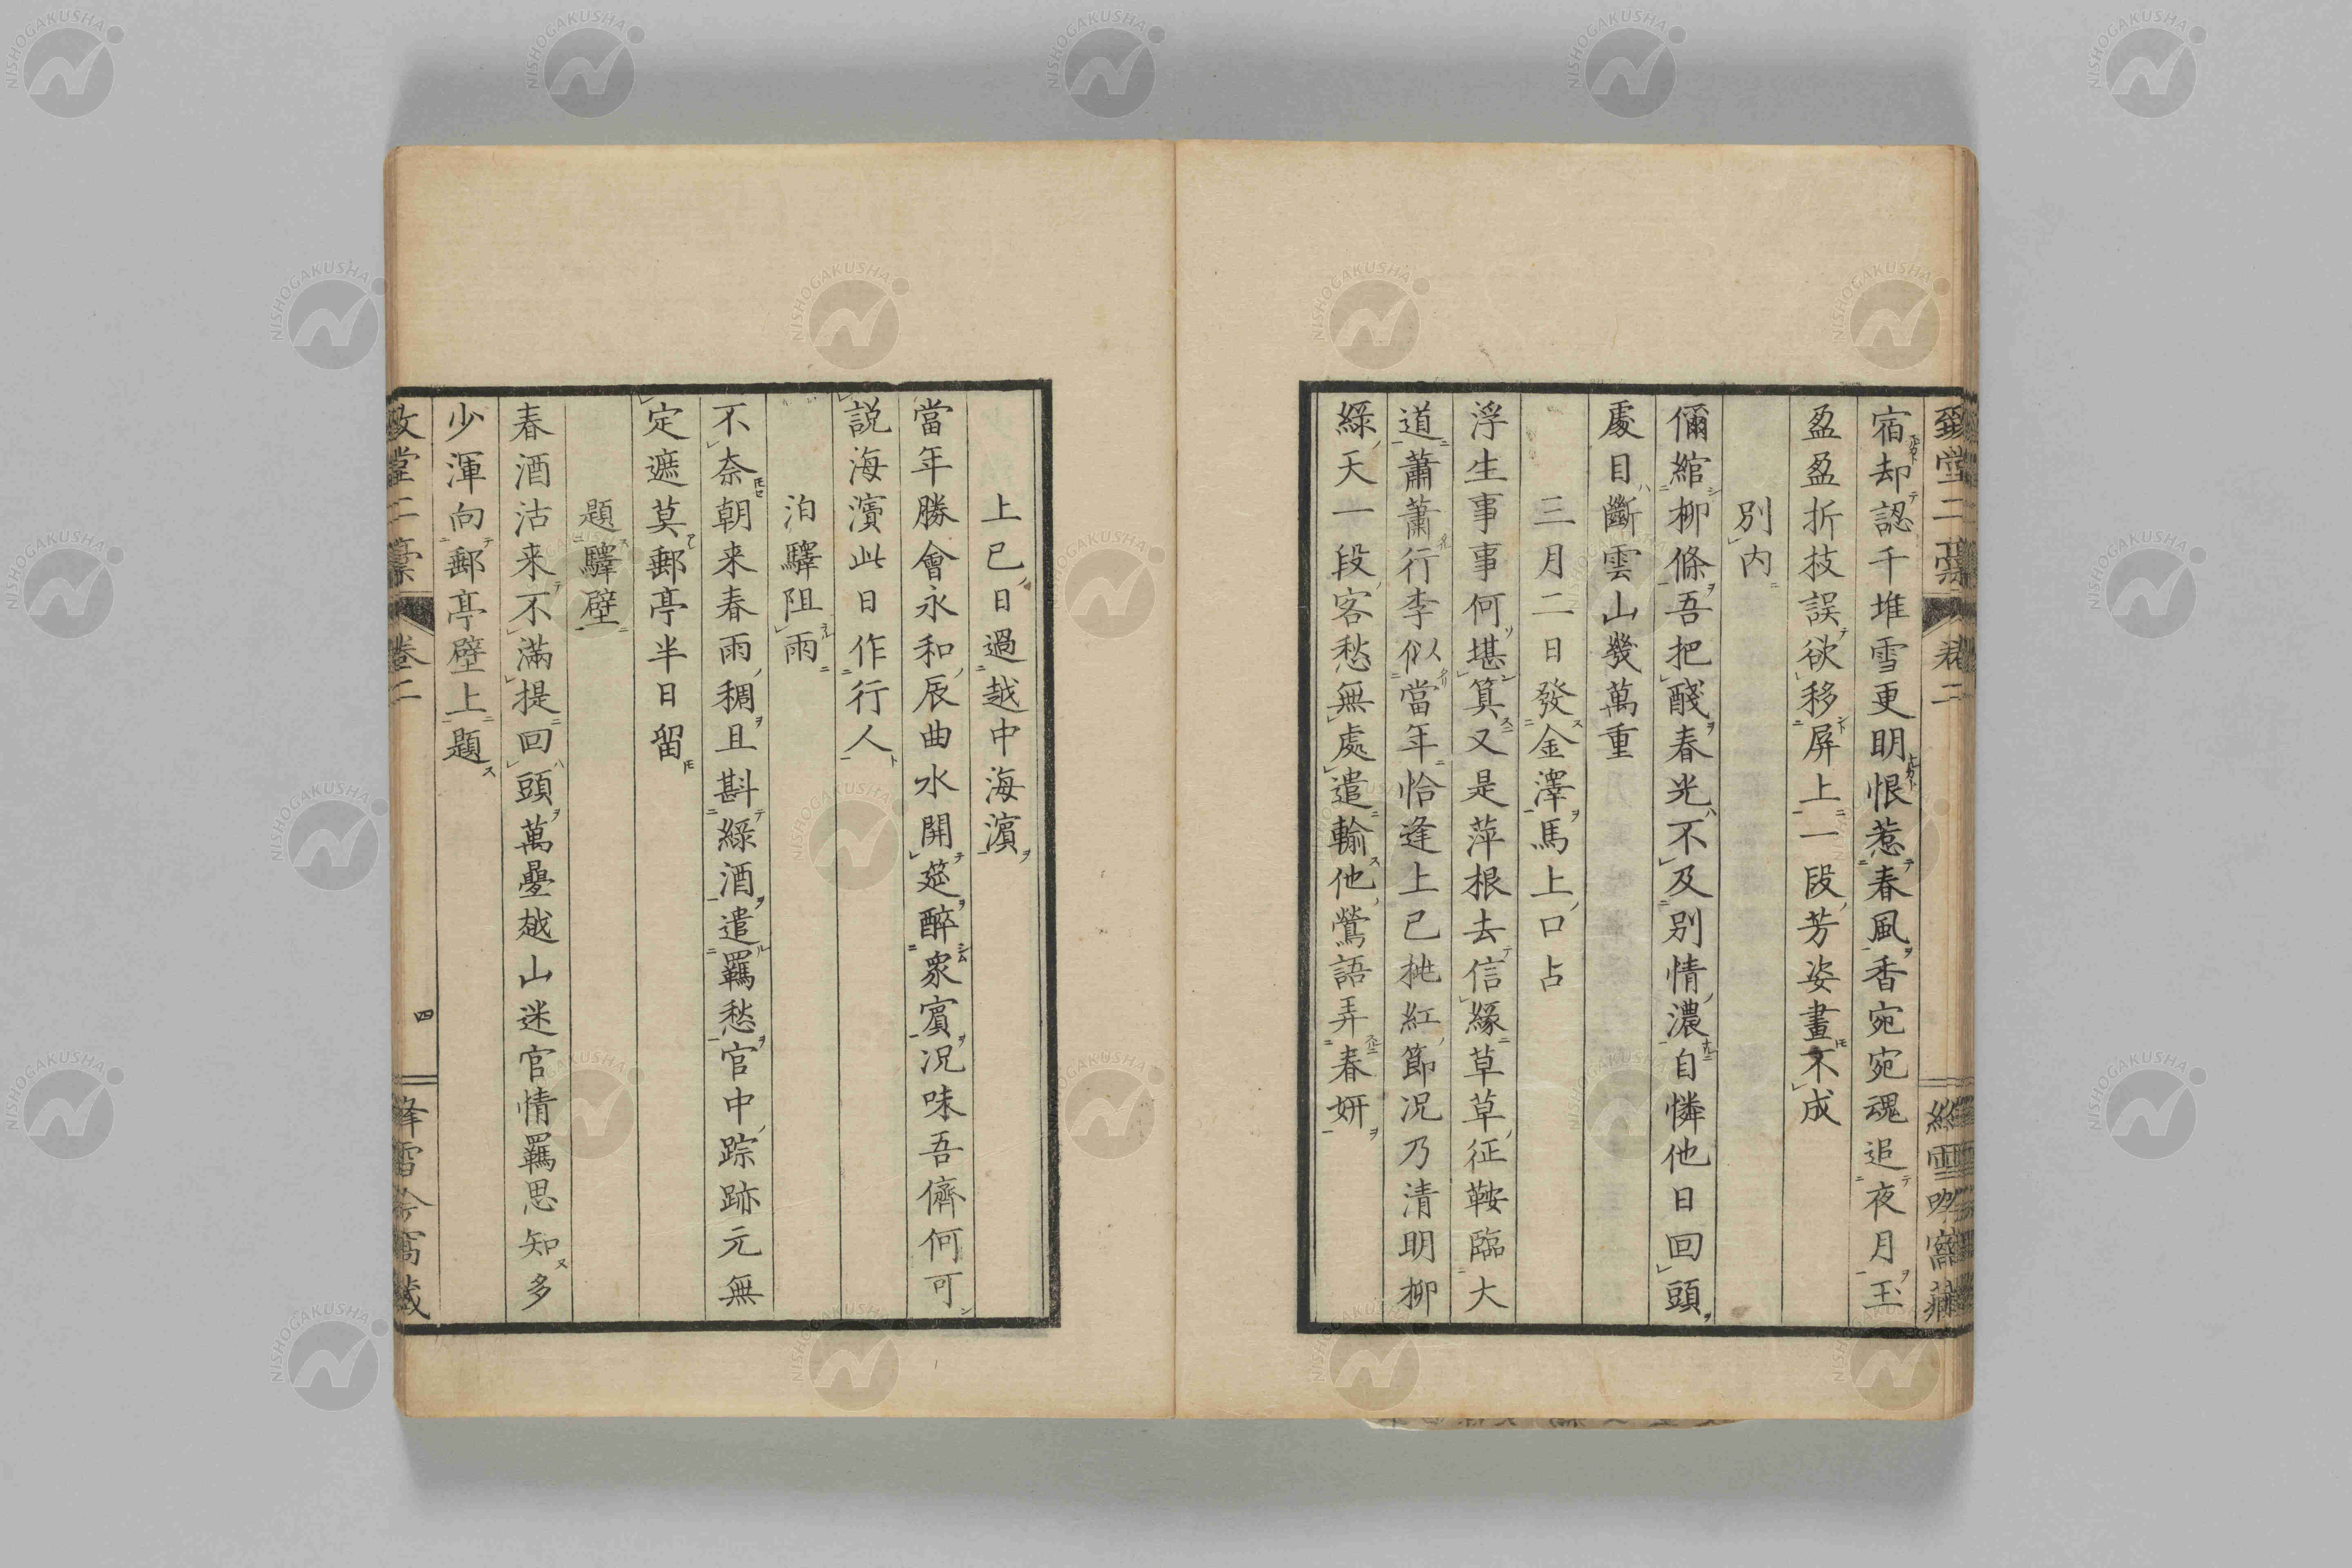 宿却認千堆雪更明恨惹春風香宛宛魂追夜月玉
盈盈折枝誤欲移屏上一段芳姿畫不成
別内
儞綰柳條吾把醆春光不及別情濃自憐他日回頭
處目斷雲山幾萬重
三月二日發金澤馬上口占
浮生事事何堪算又是萍根去信緣草草征鞍臨大
道蕭蕭行李似當年恰逢上巳桃紅節況乃清明柳
綠天一段客愁無處遣輸他鶯語弄春妍
上巳日過越中海濱
當年勝會永和辰曲水開筵醉衆賓況味吾儕何可
説海濱此日作行人
泊驛阻雨
不奈朝来春雨稠且斟綠酒遣羈愁官中踪跡元無
定遮莫郵亭半日留
題驛壁
春酒沽来不滿提回頭萬疊越山迷官情羈思知多
少渾向郵亭壁上題
堂二稾 卷二
四
雪 窩藏
NISHOGAKUSHA